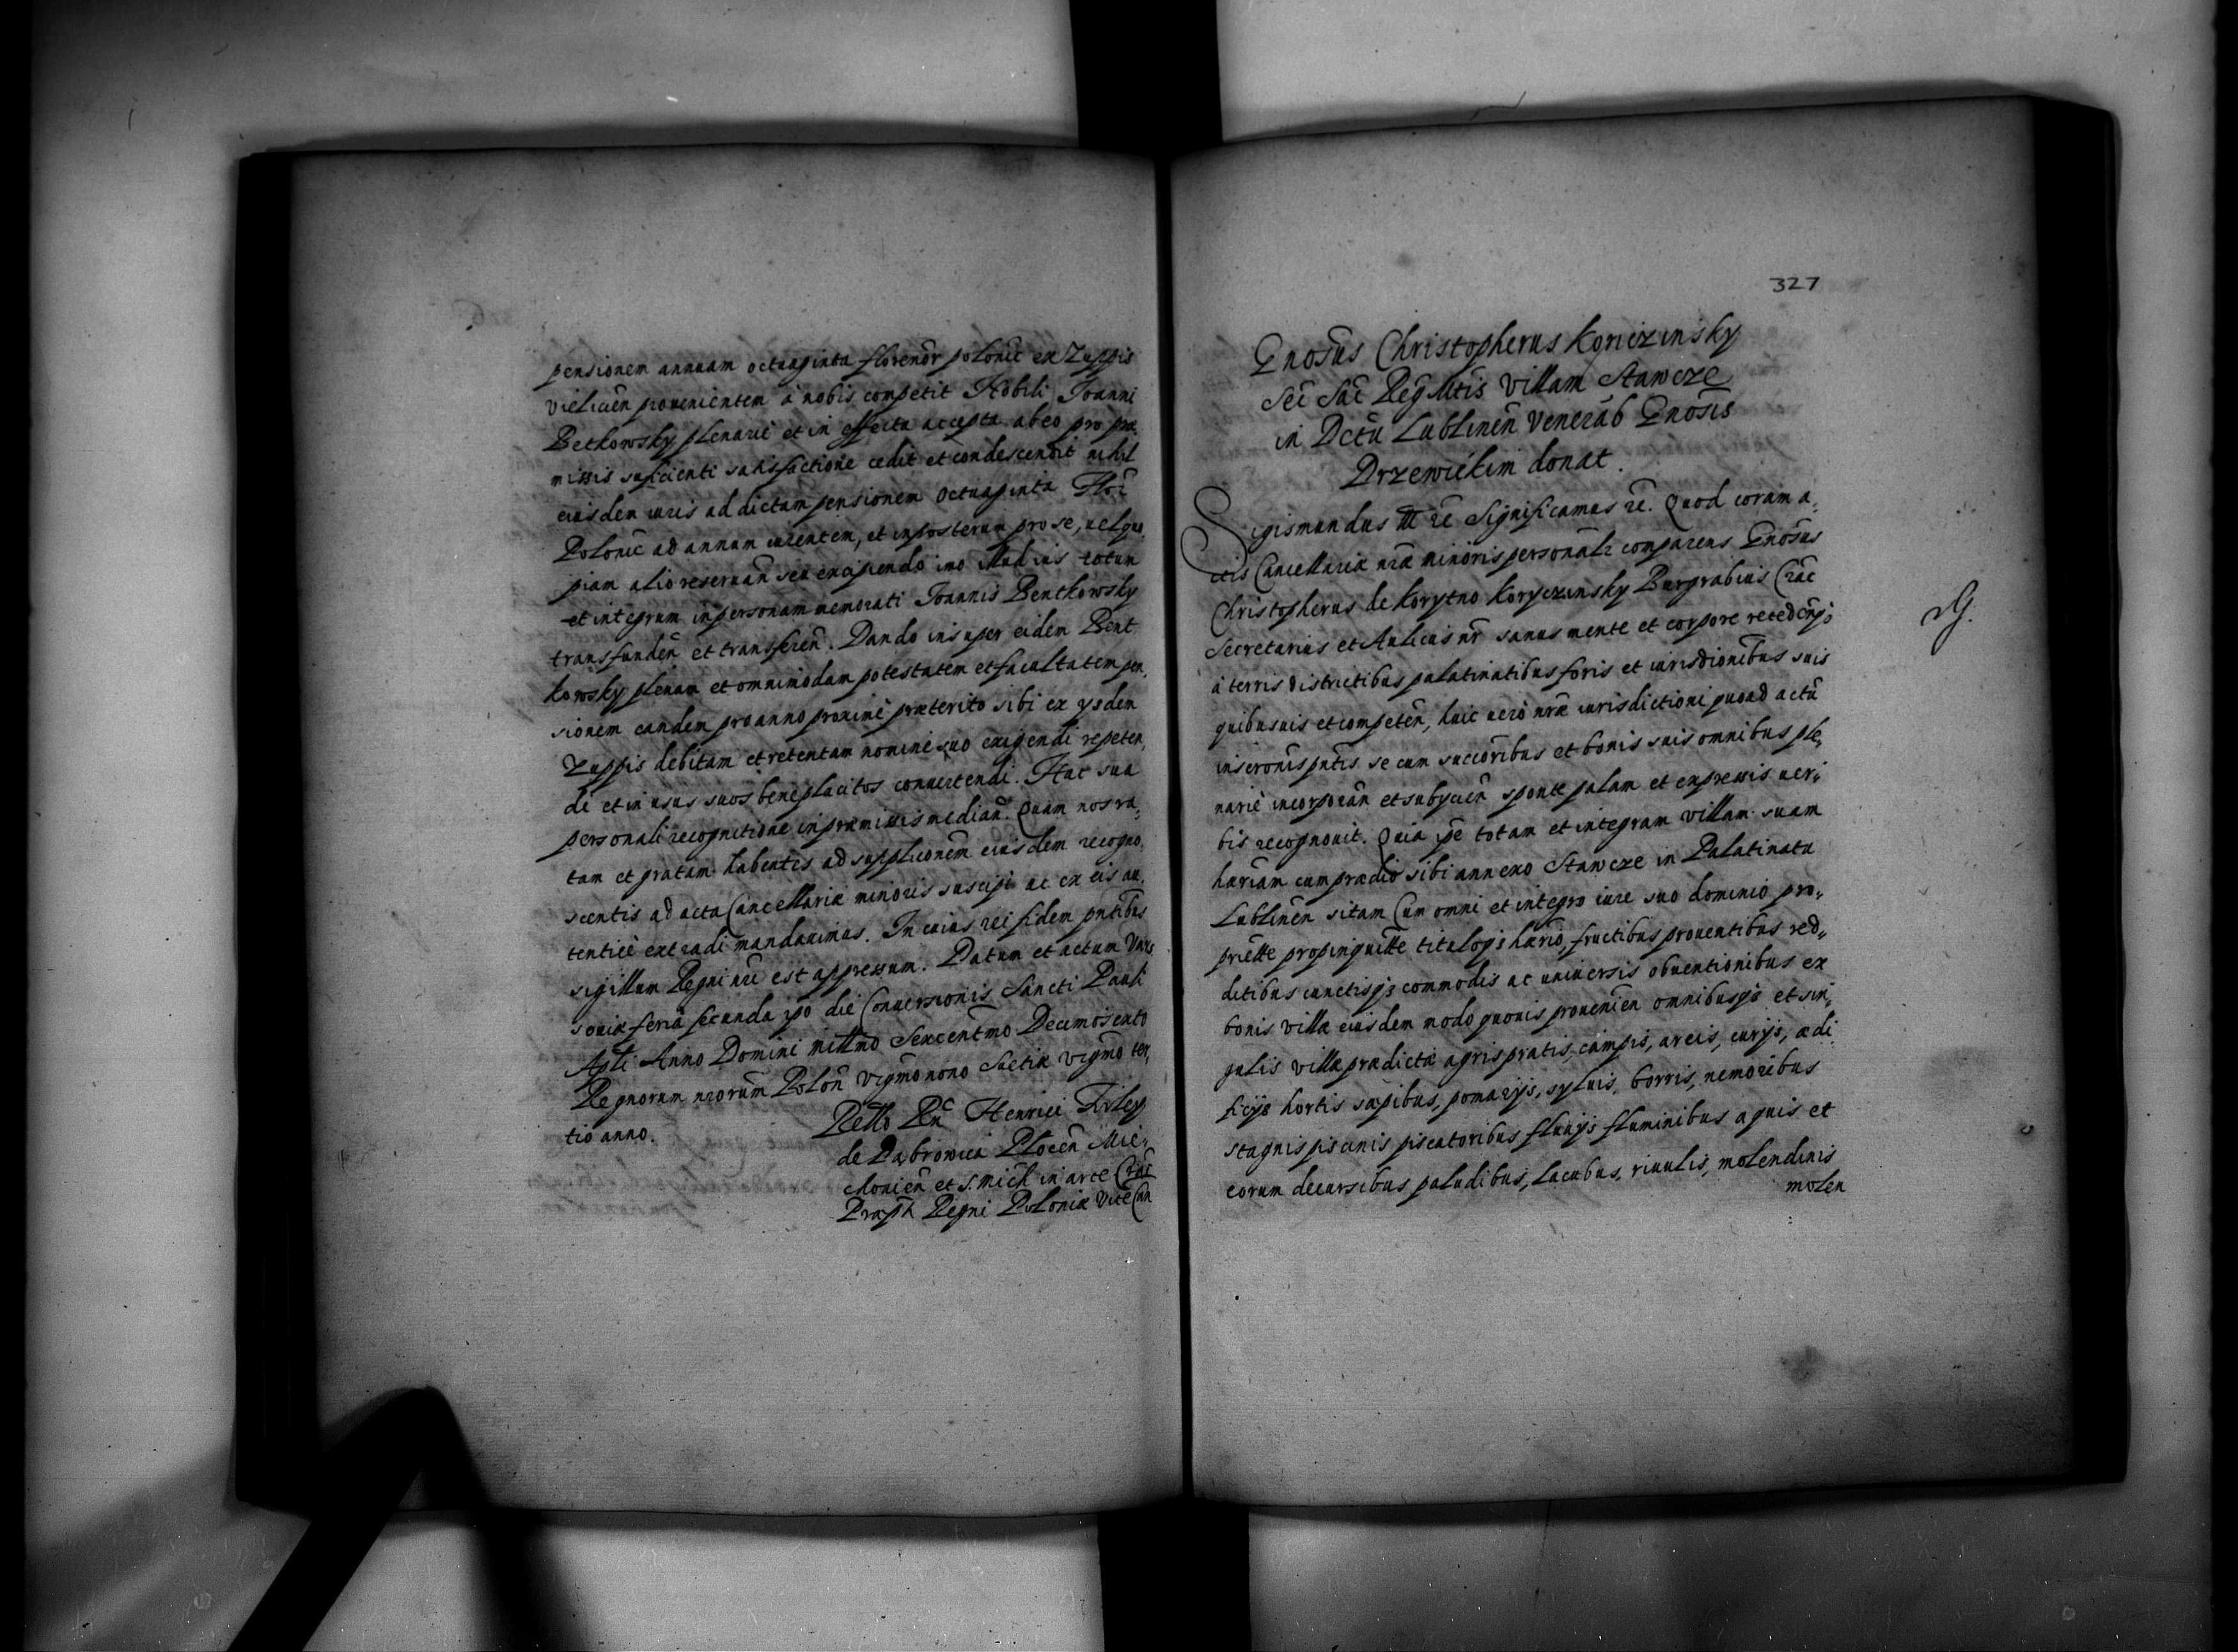 pensionem annuam octuaginta florenor̄ polonic̄ ex Zuppis
vielicen̄ prouenientem à nobis competit Nobili Joanni
Betkowsky plenariè et in effectu accepta ab eo pro præ,
missis suficienti satisfactione cedit et condescendit nihil
eiusdem iuris ad dictam pensionem octuaginta Flor̄
Polonic̄ ad annum curentem, et inposterum pro se, uel quo,
piam alio reseruan̄ seu excipiendo imo illud ius totum
et integrum in personam memorati Joannis Bentkowsky
transfunden̄ et transferen̄. Dando insuper eidem Bent
kowsky plenam et omnimodam potestatem et facultatem pen,
sionem eandem pro anno proximè præterito sibi ex ysdem
Zuppis debitam et retentam nomine suo exigendi repeten,
di et in usus suos beneplacitos conuertendi. Hac sua
personali recognitione in præmissis median̄. Quam nos ra,
tam et gratam habentes ad supplicōnem eiusdem recogno,
scentis ad acta Cancellariæ minoris suscipi ac ex eis au,
tenticè extradi mandauimus. In cuius rei fidem pntībus
sigillum Regni nrī est appressum. Datum et actum Vars
souiæ feria secunda ipō die Conuersionis Sancti Pauli
Apli Anno Domini millmō Sexcentmō Decimosexto
Regnorum nrōrum Polon̄ vigmō nono Suetiæ vigmō ter,
tio anno.
Rello Rn̄ Henrici Firley
de Dąbrowica Plocen̄ Mie,,
chouien̄ et S. Mich̄ in arce Crac̄
Præpt̄ Regni Poloniæ Vice Can
327
Gnosūs Christopherus Koriczinsky
Sec̄ Sac̄ Reḡ Mtīs villam Stawcze
in Dctū Lublinen̄ Venerab̄ Gnosīs
Drzewiēkim donat.
Sigismundus III rē Significamus rē. Quod coram a,
ctis Cancellariæ nræ minoris personalr̄ comparens Gnosūs
Christopherus de Korytno Koryczinsky Burgrabius Crac̄
Secretarius et Aulicus nr̄ sanus mente et corpore recedēnsqȝ
à terris districtibus palatinatibus foris et iurisdionībus suis
quibusuis et competen̄, huic uerò nræ iurisdictioni quoad actū
inscronīs pntīs se cum succoribus et bonis suis omnibus ple,
nariè incorporan̄ et subycien̄ sponte palam et expressis uer,
bis recognouit. Quia ipē totam et integram villam suam
hæriam cum prædio sibi annexo Stawcze in Palatinatu
Lublinen̄ sitam Cum omni et integro iure suo dominio pro,,
prietẗe propinquitẗe tituloqȝ hærio, fructibus prouentibus red,,
ditibus cunctisqȝ commodis ac uniuersis obuentionibus ex
bonis villæ eiusdem modo quouis prouenien̄ omnibusqȝ et sin,
gulis villæ prædictæ agris pratis, campis, areis, curÿs, ædi,
ficÿs hortis sæpibus, pomarÿs, syluis, borris, nemoribus
stagnis piscinis piscatoribus fluuÿs fluminibus aquis et
eorum decursibus paludibus, lacubus, riuulis, molendinis
molen